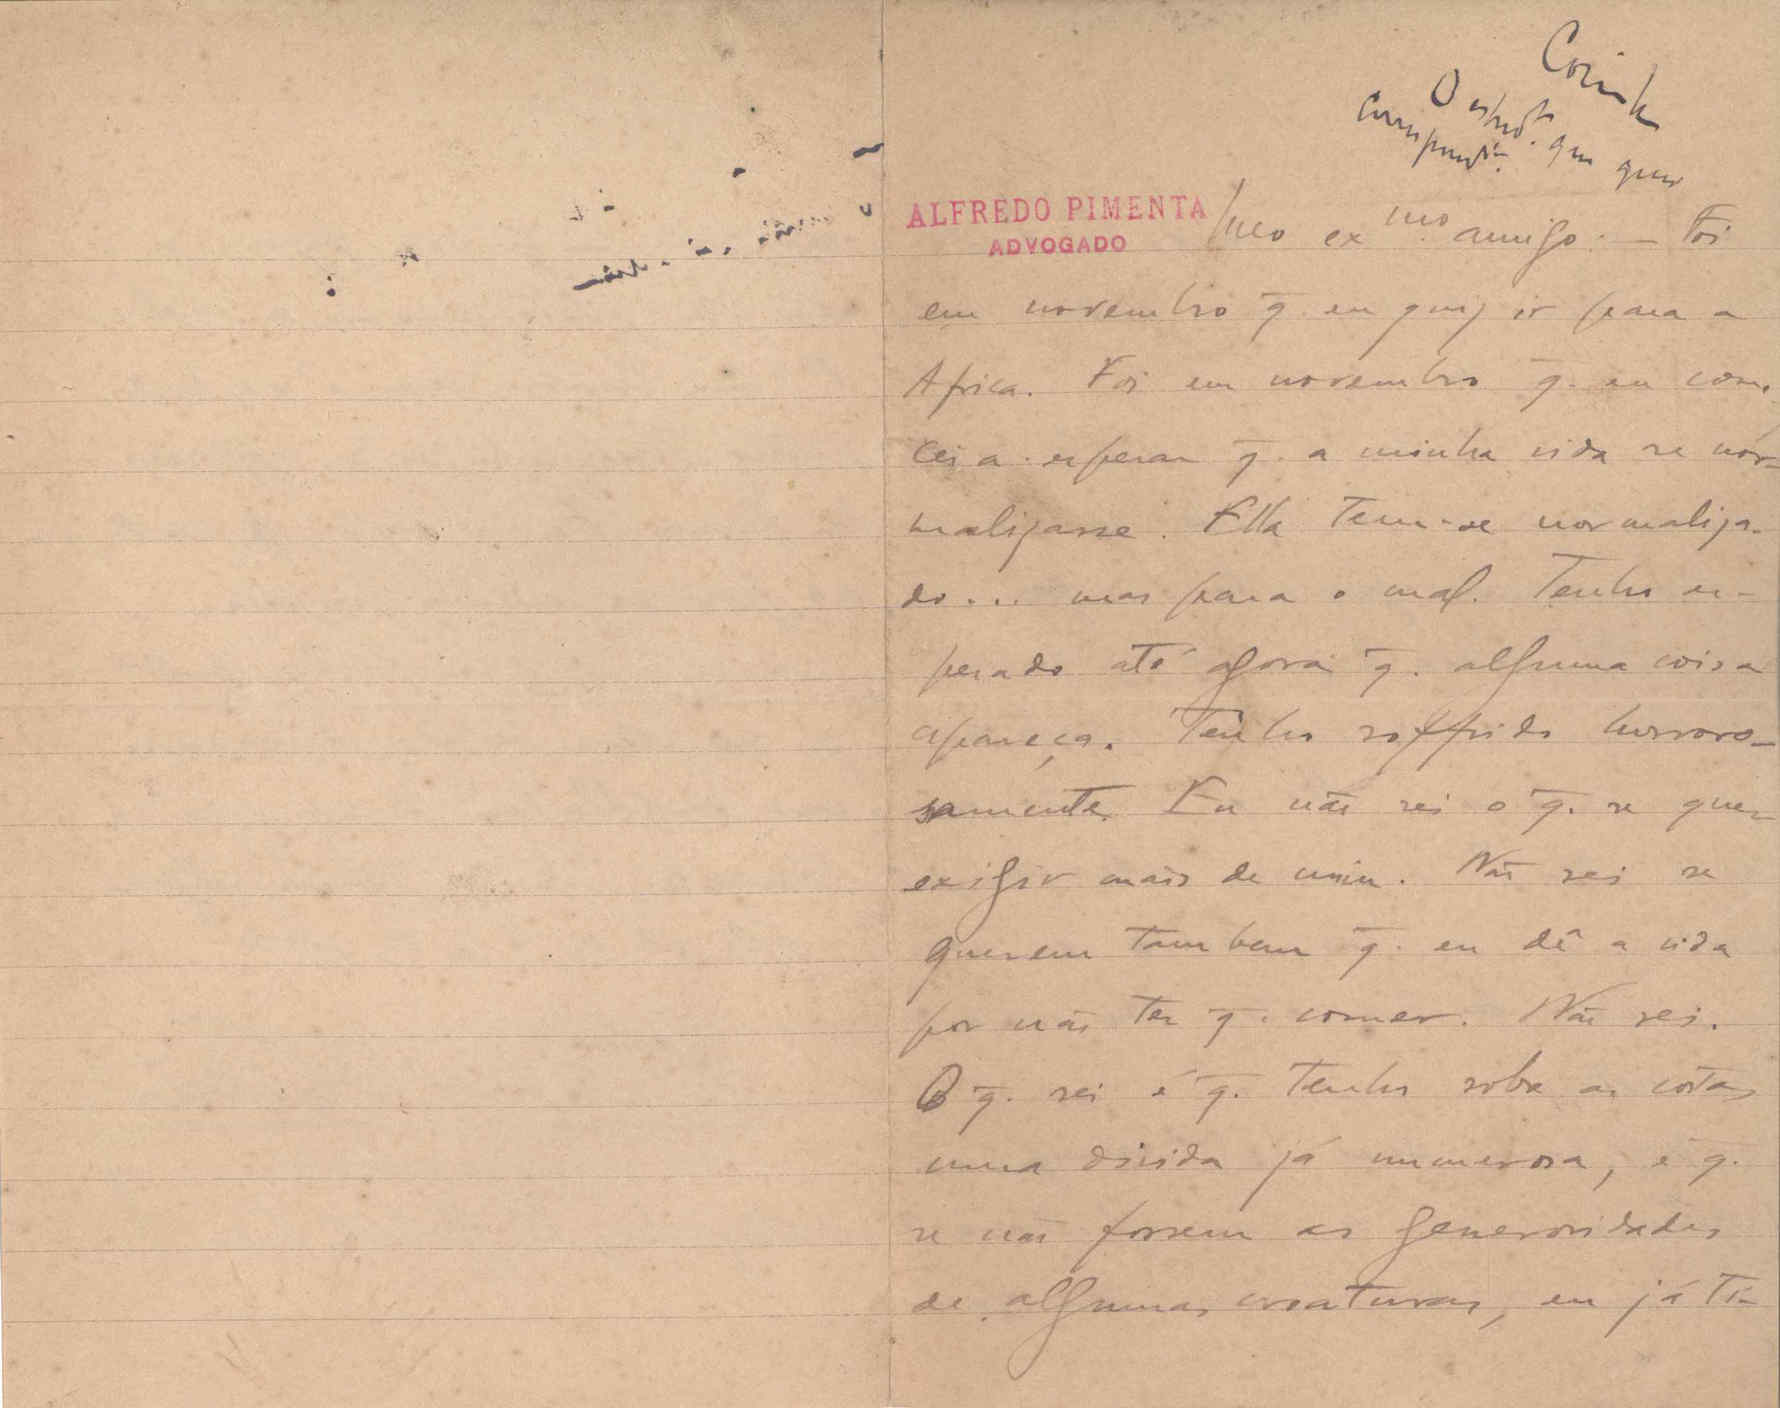 O
que quer
ALFREDO PIMENTA
ADVOGADO
Meo exmo. amigo: – Foi
em novembro q̄. eu quiz ir para a
Africa. Foi em novembro q̄. eu com.
cei a esperar q̄. a minha vida se nor-
malizasse. Ella tem-se normaliza-
do... mas para o mal. Tenho es-
perado até agora q̄. alguma coisa
apareça. Tenho soffrido horroro-
samente. Eu não sei o q̄. se quer
exigir mais de mim. Não sei se
querem tambem q̄. eu dê a vida
por não ter q̄. comer. Não sei.
O q̄. sei é q̄. tenho sobre as costas
uma divida já numerosa, é q̄.
se não fossem as generosidades
de algumas creaturas, eu já ti-